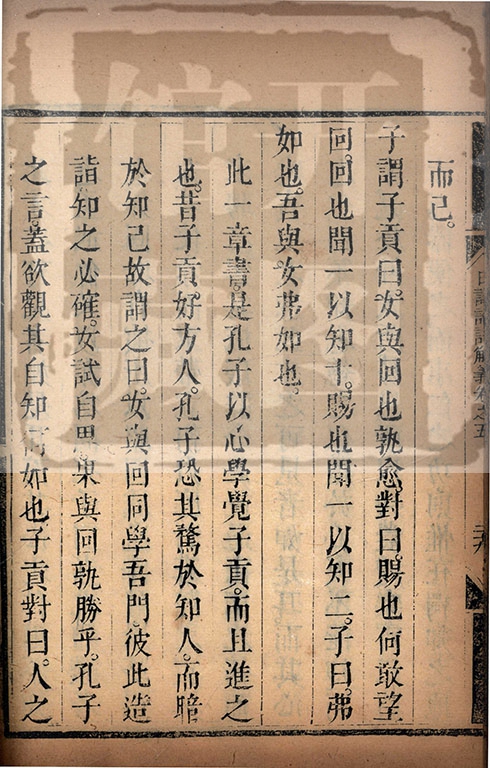 日講四書解義卷之五
而已。
子謂子貢曰。女與回也孰愈對曰。賜也何敢望
回。回也聞一以知十。賜也聞一以知二。子曰。弗
如也。吾與女弗如也。
此一章書。是孔子以心學覺子貢。而且進之
也。昔子貢好方人。孔子恐其騖於知人。而暗
於知己故謂之曰。女與回同學吾門。彼此造
詣知之必確。女試自思。果與回孰勝乎。孔子
之言。蓋欲觀其自知何如也子貢對曰。人之